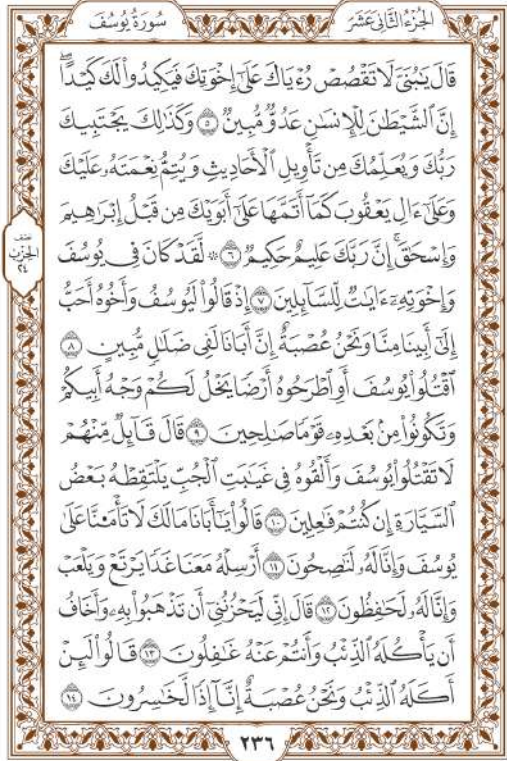 الجُزْءُ الثَّانِي عَشَرَ
سُورَةُ يُوسُفَ
قَالَ يَٰبُنَيَّ لَا تَقۡصُصۡ رُءۡيَاكَ عَلَىٰٓ إِخۡوَتِكَ فَيَكِيدُواْ لَكَ كَيۡدًاۖ
إِنَّ ٱلشَّيۡطَٰنَ لِلۡإِنسَٰنِ عَدُوّٞ مُّبِينٞ ٥ وَكَذَٰلِكَ يَجۡتَبِيكَ
رَبُّكَ وَيُعَلِّمُكَ مِن تَأۡوِيلِ ٱلۡأَحَادِيثِ وَيُتِمُّ نِعۡمَتَهُۥ عَلَيۡكَ
وَعَلَىٰٓ ءَالِ يَعۡقُوبَ كَمَآ أَتَمَّهَا عَلَىٰٓ أَبَوَيۡكَ مِن قَبۡلُ إِبۡرَٰهِيمَ
وَإِسۡحَٰقَۚ إِنَّ رَبَّكَ عَلِيمٌ حَكِيمٞ ٦ ۞ لَّقَدۡ كَانَ فِي يُوسُفَ
وَإِخۡوَتِهِۦٓ ءَايَٰتٞ لِّلسَّآئِلِينَ ٧ إِذۡ قَالُواْ لَيُوسُفُ وَأَخُوهُ أَحَبُّ
إِلَىٰٓ أَبِينَا مِنَّا وَنَحۡنُ عُصۡبَةٌ إِنَّ أَبَانَا لَفِي ضَلَٰلٖ مُّبِينٍ ٨
ٱقۡتُلُواْ يُوسُفَ أَوِ ٱطۡرَحُوهُ أَرۡضٗا يَخۡلُ لَكُمۡ وَجۡهُ أَبِيكُمۡ
وَتَكُونُواْ مِنۢ بَعۡدِهِۦ قَوۡمٗا صَٰلِحِينَ ٩ قَالَ قَآئِلٞ مِّنۡهُمۡ
لَا تَقۡتُلُواْ يُوسُفَ وَأَلۡقُوهُ فِي غَيَٰبَتِ ٱلۡجُبِّ يَلۡتَقِطۡهُ بَعۡضُ
ٱلسَّيَّارَةِ إِن كُنتُمۡ فَٰعِلِينَ ١٠ قَالُواْ يَٰٓأَبَانَا مَالَكَ لَا تَأۡمَ۬نَّا عَلَىٰ
يُوسُفَ وَإِنَّا لَهُۥ لَنَٰصِحُونَ ١١ أَرۡسِلۡهُ مَعَنَا غَدٗا يَرۡتَعۡ وَيَلۡعَبۡ
وَإِنَّا لَهُۥ لَحَٰفِظُونَ ١٢ قَالَ إِنِّي لَيَحۡزُنُنِيٓ أَن تَذۡهَبُواْ بِهِۦ وَأَخَافُ
أَن يَأۡكُلَهُ ٱلذِّئۡبُ وَأَنتُمۡ عَنۡهُ غَٰفِلُونَ ١٣ قَالُواْ لَئِنۡ
أَكَلَهُ ٱلذِّئۡبُ وَنَحۡنُ عُصۡبَةٌ إِنَّآ إِذٗا لَّخَٰسِرُونَ ١٤
نصف
الحزب
٢٤
٢٣٦